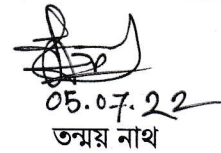 05.07.22
তন্ময় নাথ